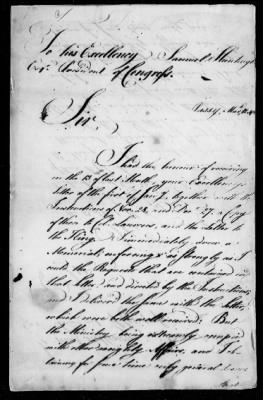 To his Excellency Samuel Huntington
Esqr President of Congress.
Passy, Mar. 12. 1781
Sir
I had the honour of receiving
on the 13 of last Month, your Excellency's
Letter of the first of Jany, together with the
Instructions of Nov. 28, and Dec. 27, a Copy
of those to Col. Laurens, and the Letter to
the King. I immediately drew up a
Memorial, enforcing as strongly as I
could the Requests that are contained in
that Letter and directed by the Instructions,
and I delivered the same with the Letter,
which were both well received: But
the Ministry being extreamly occupied
with other weighty Affairs, and I ob-
taining for some time only general Answers
that